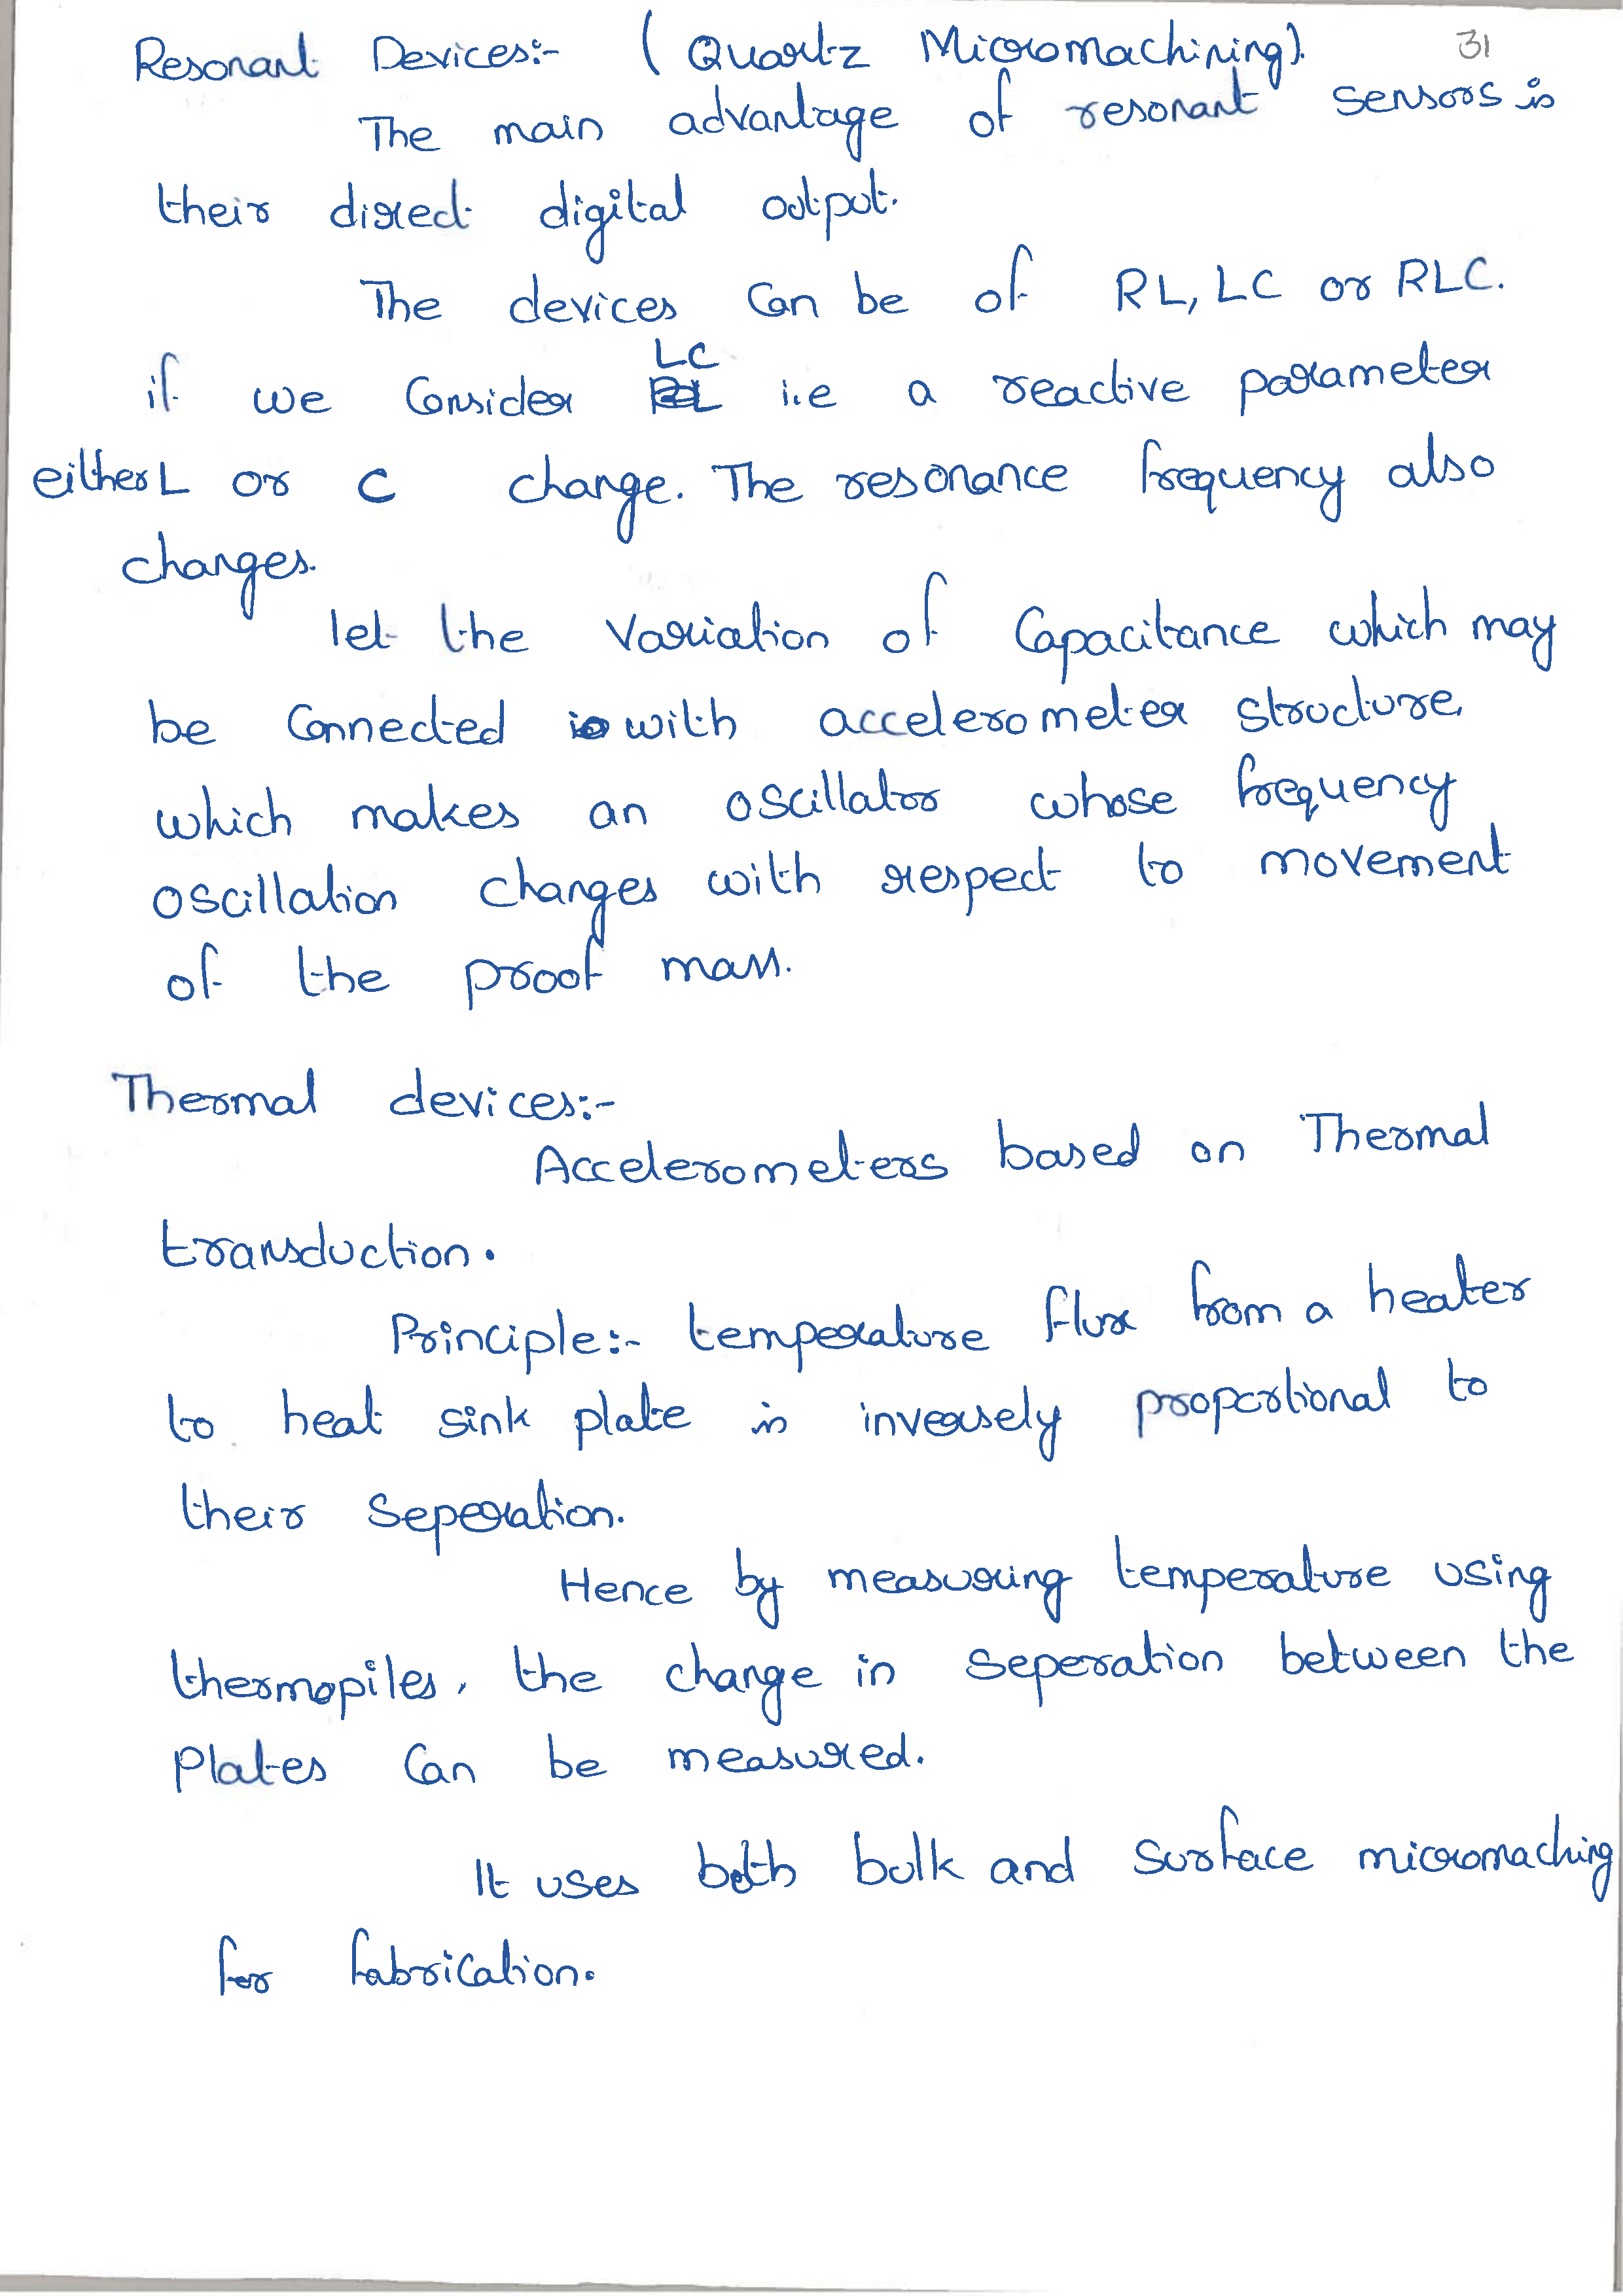 31
Resonant Devices:- (Quartz Micromachining).
The main advantage of resonant sensors is
their direct digital output.
The devices can be of RL, LC or RLC.
LC
if we consider i.e a reactive parameter
either L or C change. The resonance frequency also
changes.
let the variation of Capacitance which may
be connected with accelerometer structure,
which makes an oscillator whose frequency
oscillation changes with respect to movement
of the proof mass.
Thermal devices:-
Accelerometers based on Thermal
transduction.
Principle:- temperature flux from a heater
to heat sink plate is inversely proportional to
their Seperation.
Hence by measuring temperature using
thermopiles, the change in seperation between the
plates can be measured.
It uses both bulk and surface micromaching
for fabrication.